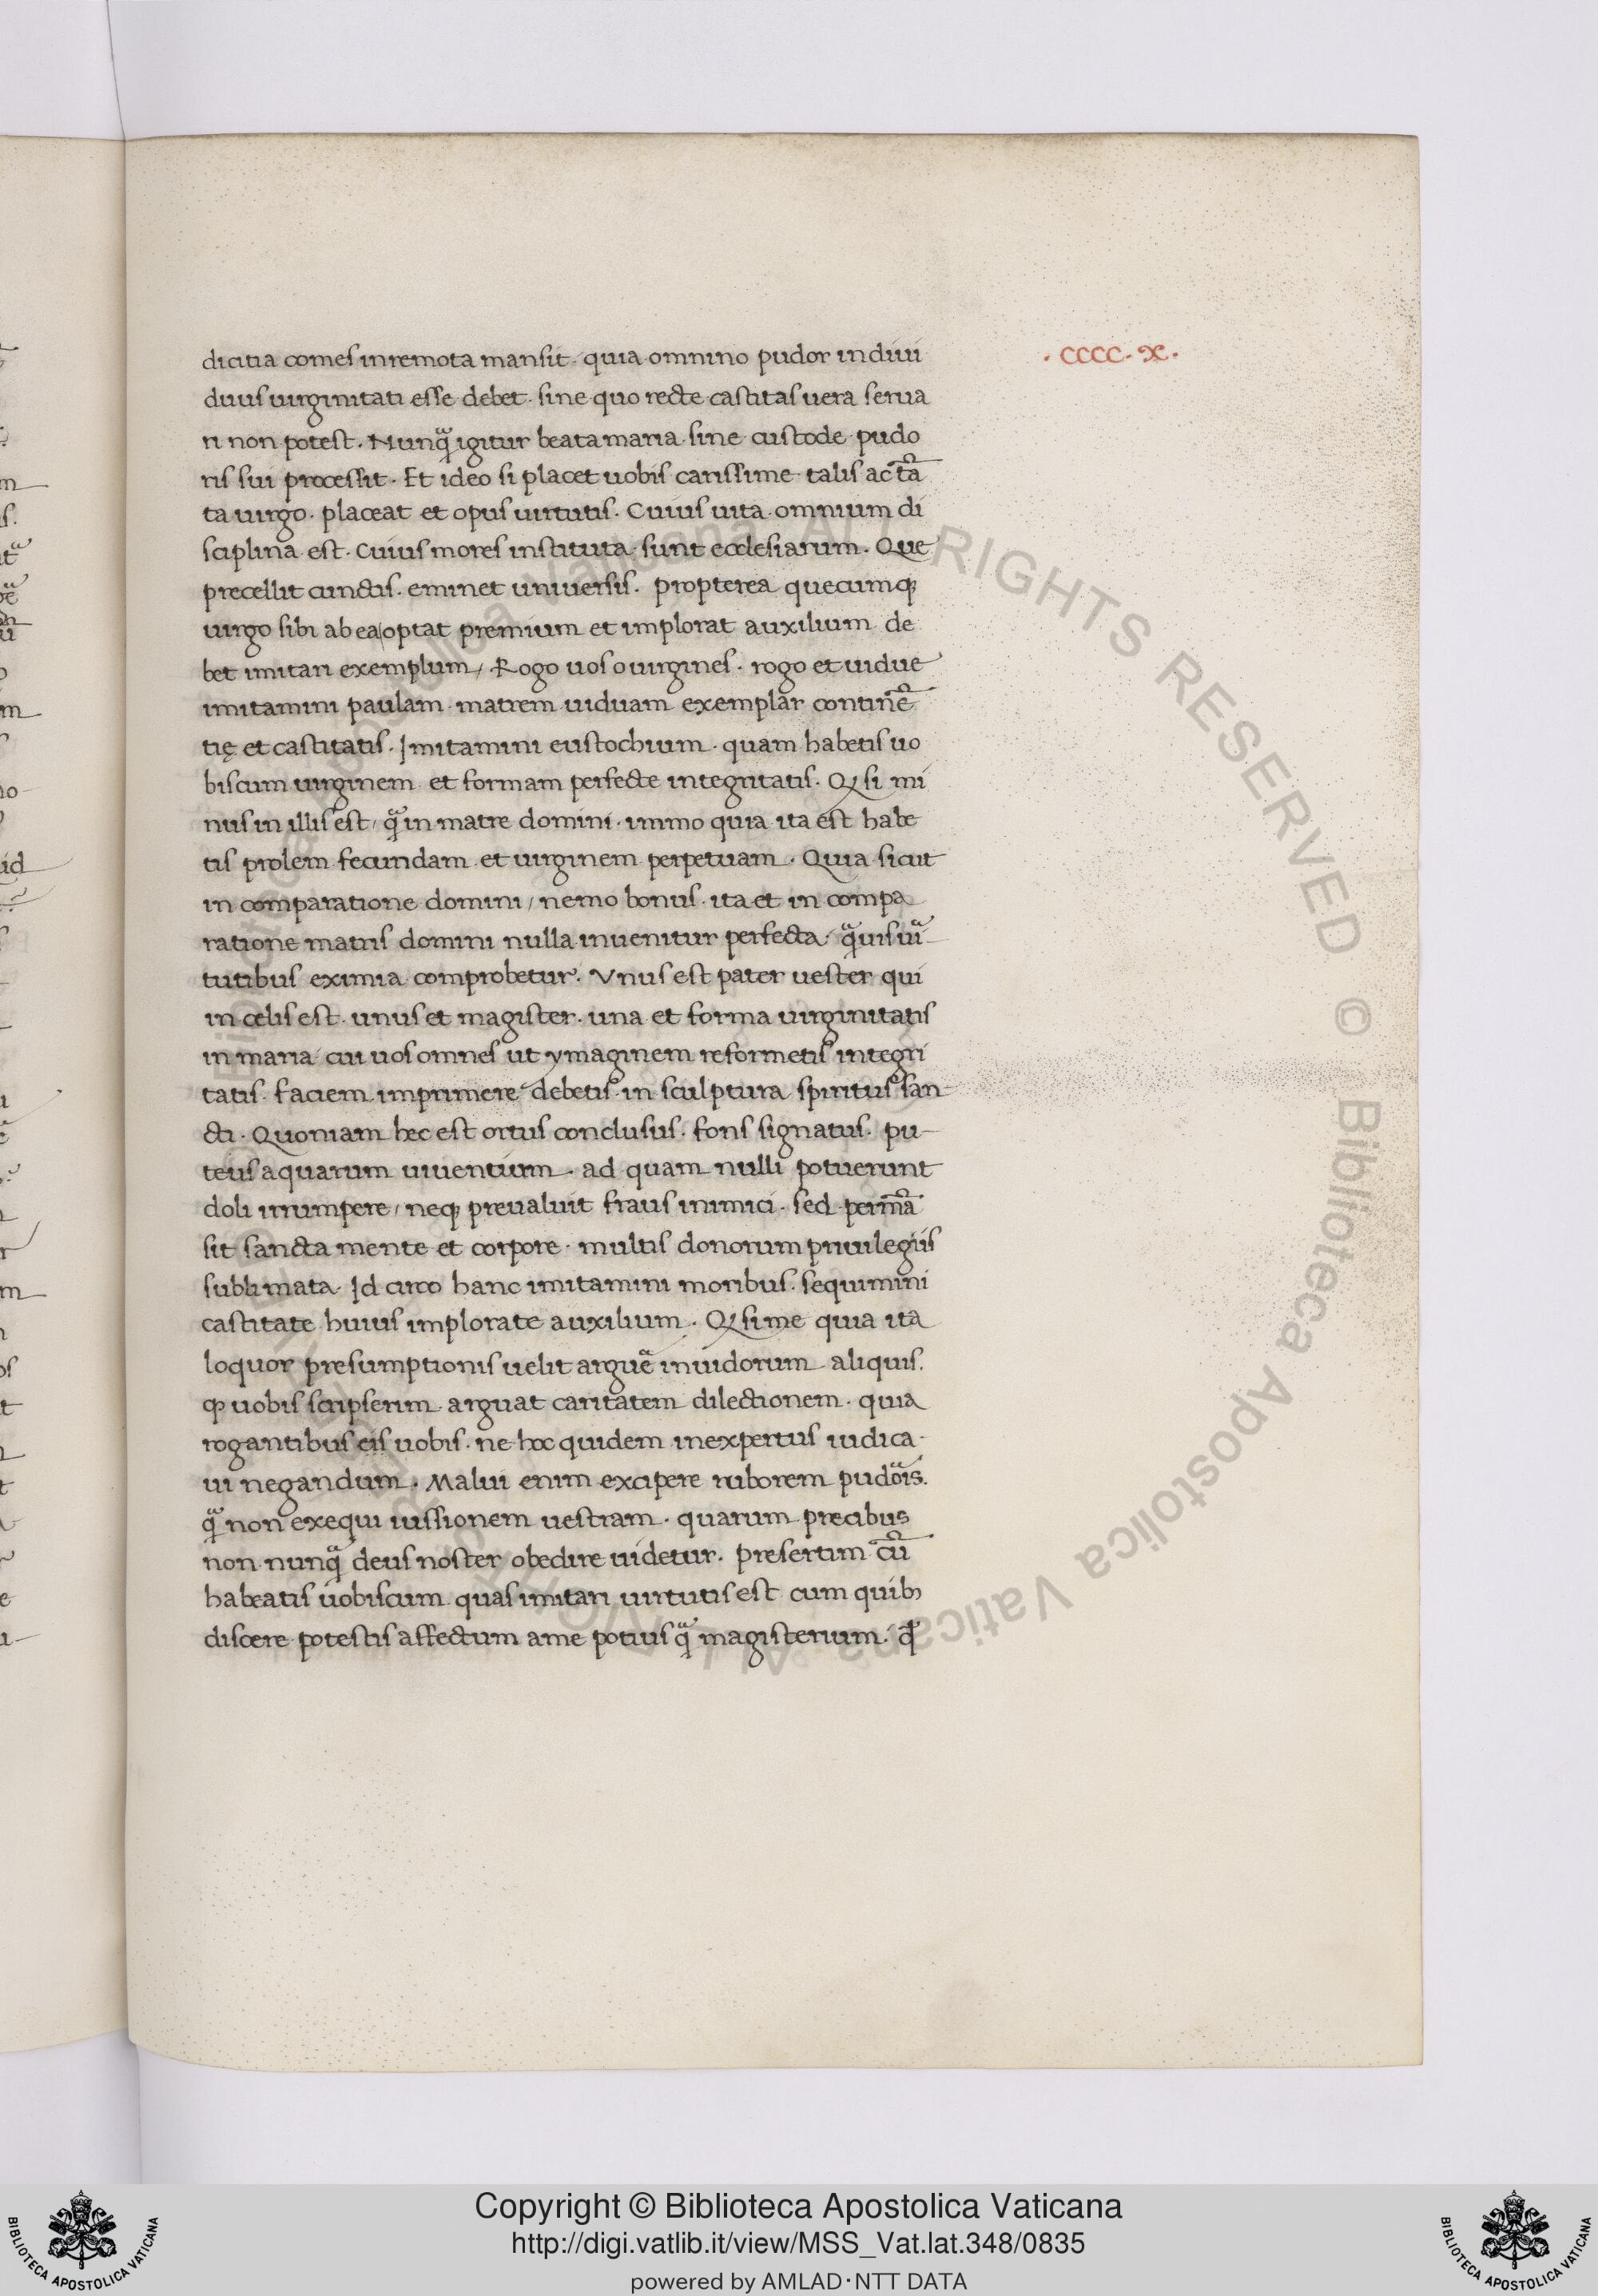 dicitia comes inremota mansit. quia omnino pudor indiui
· CCCC · X ·
duus uirginitati esse debet. sine quo recte castitas uera serua
ri non potest. Nunq̃ igitur beata maria sine custode pudo
ris sui processit. Et ideo si placet uobis carissime talis ac tã
ta uirgo. placeat et opus uirtutis. Cuius uita omnium di
sciplina est. Cuius mores instituta sunt ecclesiarum. Que
precellit cunctis. eminet uniuersis. propterea quecumq;
uirgo sibi ab ea optat premium et implorat auxilium de
bet imitari exemplum / Rogo uos o uirgines. rogo et uidue
imitamini paulam matrem uiduam exemplar continẽ
tię et castitatis. Imitamini eustochium. quam habetis uo
biscum uirginem et formam perfecte integritatis. Q; si mi
nus in illis est / q̃ in matre domini. immo quia ita est habe
tis prolem fecundam et uirginem perpetuam. Quia sicut
in comparatione domini / nemo bonus. ita et in compa
ratione matris domini nulla inuenitur perfecta. q̃uis uĩ
tutibus eximia comprobetur. Vnus est pater uester qui
in celis est. unus et magister. una et forma uirginitatis
in maria cui uos omnes ut ymaginem reformetis integri
tatis. faciem imprimere debetis in sculptura spiritus san
cti. Quoniam hec est ortus conclusus. fons signatus. pu-
teus aquarum uiuentium. ad quam nulli potuerunt
doli irrumpere / neq; preualuit fraus inimici. sed permã
sit sancta mente et corpore. multis donorum priuilegiis
sublimata. Id circo hanc imitamini moribus. sequimini
castitate huius implorate auxilium. Q; si me quia ita
loquor presumptionis uelit arguẽ inuidorum aliquis.
ꝙ uobis scripserim arguat caritatem dilectionem. quia
rogantibus eis uobis. ne hoc quidem inexpertus iudica-
ui negandum. Malui enim excipere ruborem pudõis.
q̃ non exequi iussionem uestram. quarum precibus
non nunq̃ deus noster obedire uidetur. presertim cũ
habeatis uobiscum quas imitari uirtutis est cum quib;
discere potestis affectum ame potius q̃ magisterium. q̃
Copyright © Biblioteca Apostolica Vaticana
http://digi.vatlib.it/view/MSS_Vat.lat.348/0835
powered by AMLAD·NTT DATA
BIBLIOTECA APOSTOLICA VATICANA
BIBLIOTECA APOSTOLICA VATICANA